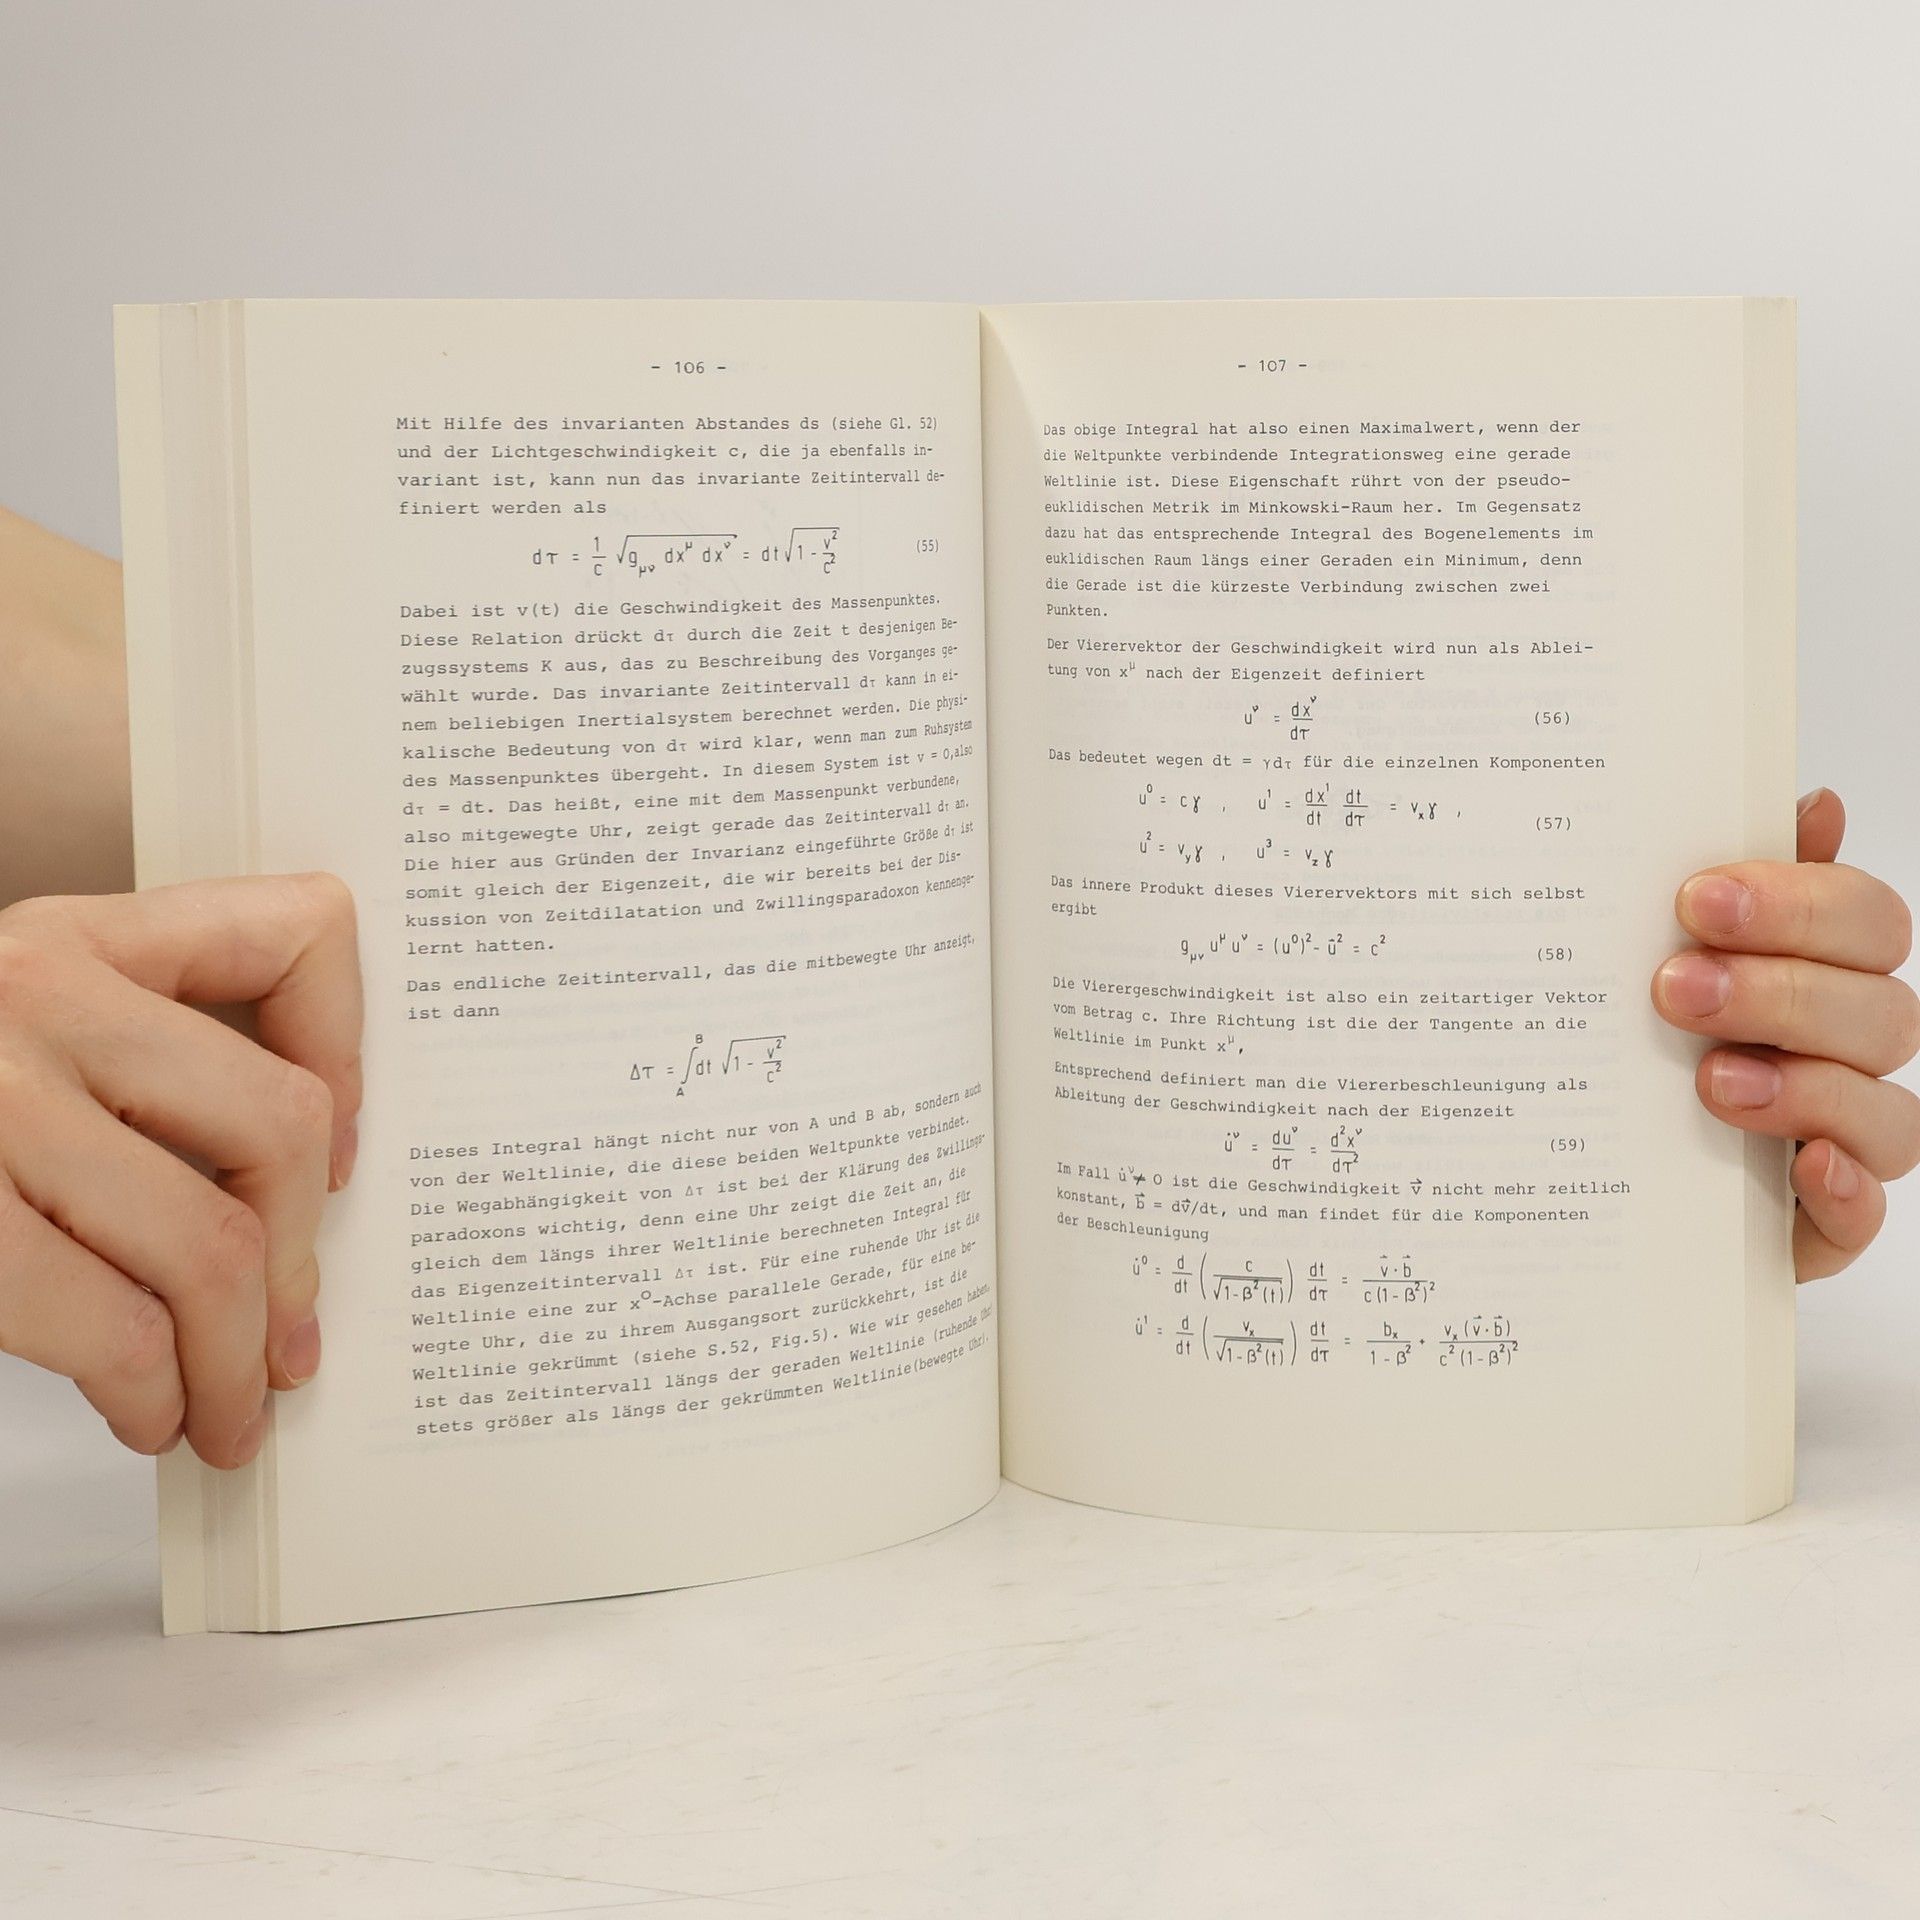 - 106 -
Mit Hilfe des invarianten Abstandes ds (siehe Gl. 52)
und der Lichtgeschwindigkeit c, die ja ebenfalls in-
variant ist, kann nun das invariante Zeitintervall de-
finiert werden als
dτ = 1/c √(g_μν dx^μ dx^ν) = dt √(1 - v²/c²) (55)
Dabei ist v(t) die Geschwindigkeit des Massenpunktes.
Diese Relation drückt dτ durch die Zeit t desjenigen Be-
zugssystems K aus, das zu Beschreibung des Vorganges ge-
wählt wurde. Das invariante Zeitintervall dτ kann in ei-
nem beliebigen Inertialsystem berechnet werden. Die physi-
kalische Bedeutung von dτ wird klar, wenn man zum Ruhsystem
des Massenpunktes übergeht. In diesem System ist v = 0,also
dτ = dt. Das heißt, eine mit dem Massenpunkt verbundene,
also mitgewegte Uhr, zeigt gerade das Zeitintervall dτ an.
Die hier aus Gründen der Invarianz eingeführte Größe dτ ist
somit gleich der Eigenzeit, die wir bereits bei der Dis-
kussion von Zeitdilatation und Zwillingsparadoxon kennenge-
lernt hatten.
Das endliche Zeitintervall, das die mitbewegte Uhr anzeigt,
ist dann
Δτ = ∫_A^B dt √(1 - v²/c²)
Dieses Integral hängt nicht nur von A und B ab, sondern auch
von der Weltlinie, die diese beiden Weltpunkte verbindet.
Die Wegabhängigkeit von Δτ ist bei der Klärung des Zwillings-
paradoxons wichtig, denn eine Uhr zeigt die Zeit an, die
gleich dem längs ihrer Weltlinie berechneten Integral für
das Eigenzeitintervall Δτ ist. Für eine ruhende Uhr ist die
Weltlinie eine zur x⁰-Achse parallele Gerade, für eine be-
wegte Uhr, die zu ihrem Ausgangsort zurückkehrt, ist die
Weltlinie gekrümmt (siehe S.52, Fig.5). Wie wir gesehen haben,
ist das Zeitintervall längs der geraden Weltlinie (ruhende Uhr)
stets größer als längs der gekrümmten Weltlinie(bewegte Uhr).
- 107 -
Das obige Integral hat also einen Maximalwert, wenn der
die Weltpunkte verbindende Integrationsweg eine gerade
Weltlinie ist. Diese Eigenschaft rührt von der pseudo-
euklidischen Metrik im Minkowski-Raum her. Im Gegensatz
dazu hat das entsprechende Integral des Bogenelements im
euklidischen Raum längs einer Geraden ein Minimum, denn
die Gerade ist die kürzeste Verbindung zwischen zwei
Punkten.
Der Vierervektor der Geschwindigkeit wird nun als Ablei-
tung von x^μ nach der Eigenzeit definiert
u^ν = dx^ν/dτ (56)
Das bedeutet wegen dt = γdτ für die einzelnen Komponenten
u⁰ = cγ , u¹ = dx¹/dt dt/dτ = v_x γ ,
(57)
u² = v_y γ , u³ = v_z γ
Das innere Produkt dieses Vierervektors mit sich selbst
ergibt
g_μν u^μ u^ν = (u⁰)² - u⃗² = c² (58)
Die Vierergeschwindigkeit ist also ein zeitartiger Vektor
vom Betrag c. Ihre Richtung ist die der Tangente an die
Weltlinie im Punkt x^μ,
Entsprechend definiert man die Viererbeschleunigung als
Ableitung der Geschwindigkeit nach der Eigenzeit
u̇^ν = du^ν/dτ = d²x^ν/dτ² (59)
Im Fall u̇^ν ≠ 0 ist die Geschwindigkeit v⃗ nicht mehr zeitlich
konstant, b⃗ = dv⃗/dt, und man findet für die Komponenten
der Beschleunigung
u̇⁰ = d/dt (c/√(1-β²(t))) dt/dτ = v⃗·b⃗/c(1-β²)²
u̇¹ = d/dt (v_x/√(1-β²(t))) dt/dτ = b_x/1-β² + v_x(v⃗·b⃗)/c²(1-β²)²